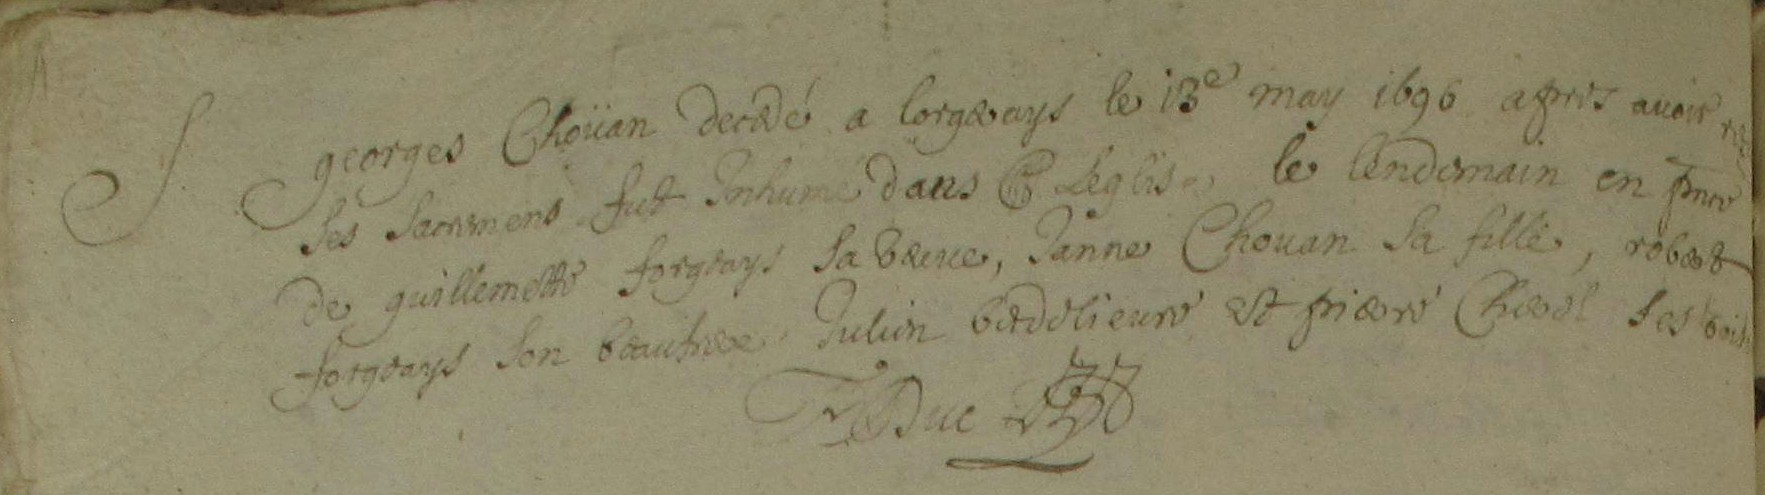 georges Choüan decedé a lorgerays le 13e may 1696 apres avoir
ses sacremens fut Inhumé dans Leglise le lendemain en pnce
de guillemette forgerays sa veuve, Janne Chouan sa fille, robert
forgerays son beaufrere Julien et pierre ses
Duc